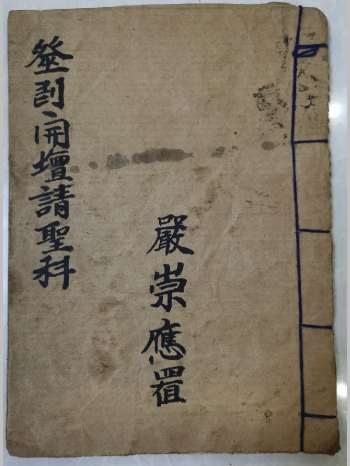 開壇請聖科
嚴崇應置